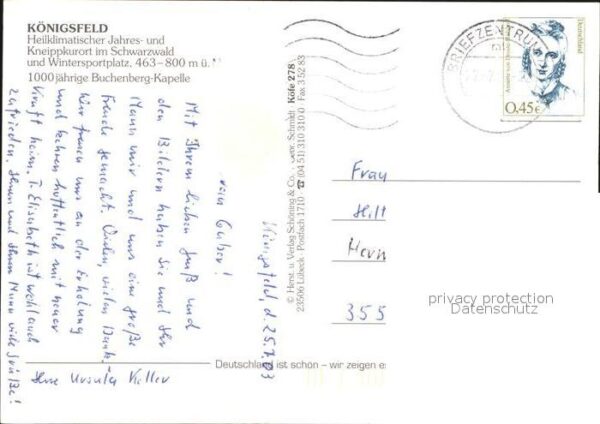 KÖNIGSFELD
Heilklimatischer Jahres- und
Kneippkurort im Schwarzwald
und Wintersportplatz, 463–800 m ü.
1000jährige Buchenberg-Kapelle
Königsfeld, d. 25.7.03
Mit Ihrem lieben Gruß und
den Bildern haben Sie und Ihr
Mann mir und uns eine große
Freude gemacht. Vielen, vielen Dank.–
Wir freuen uns an der Erholung
und kehren hoffentlich mit neuer
Kraft heim. T. Elisabeth ist wohl auch
zufrieden. Ihnen und Ihrem Mann viele Grüße!
Ihre Ursula Keller
© Herst. u. Verlag Schöning & Co. Schmidt Köfe 278
23506 Lübeck · Postfach 1710 · ☎ (04 51) 310 310 0 Fax 3 52 83
Deutschland ist schön – wir zeigen es
BRIEFZENTRUM
Deutschland
0,45€
Frau
Hilt
Horn
355
privacy protection
Datenschutz